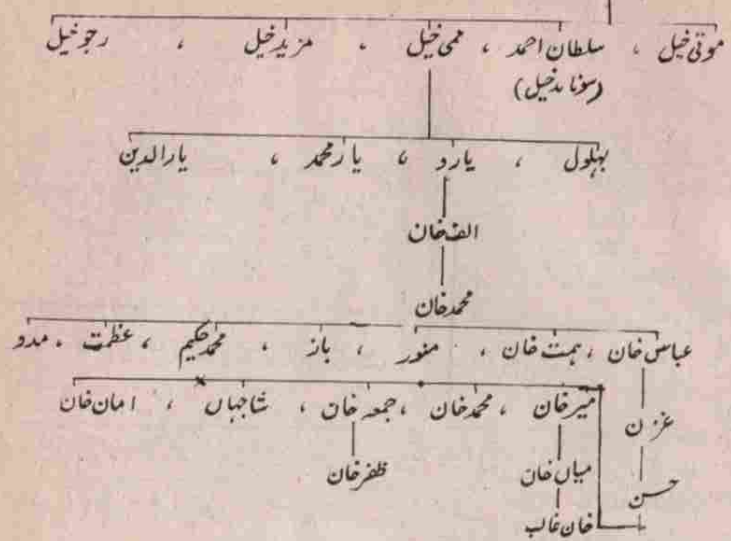 موتی خیل ، سلطان احمد ، ممی خیل ، مزید خیل ، رجو خیل
(سونا مدخیل)
بہلول ، یارد ، یار محمد ، یارالدین
الف خان
محمد خان
عباس خان ، ہمت خان ، منور ، باز ، محمد حکیم ، عظمت ، مدو
میر خان ، محمد خان ، جمعہ خان ، شاجہاں ، امان خان
عزن
ظفر خان
میاں خان
حسن
خان غالب